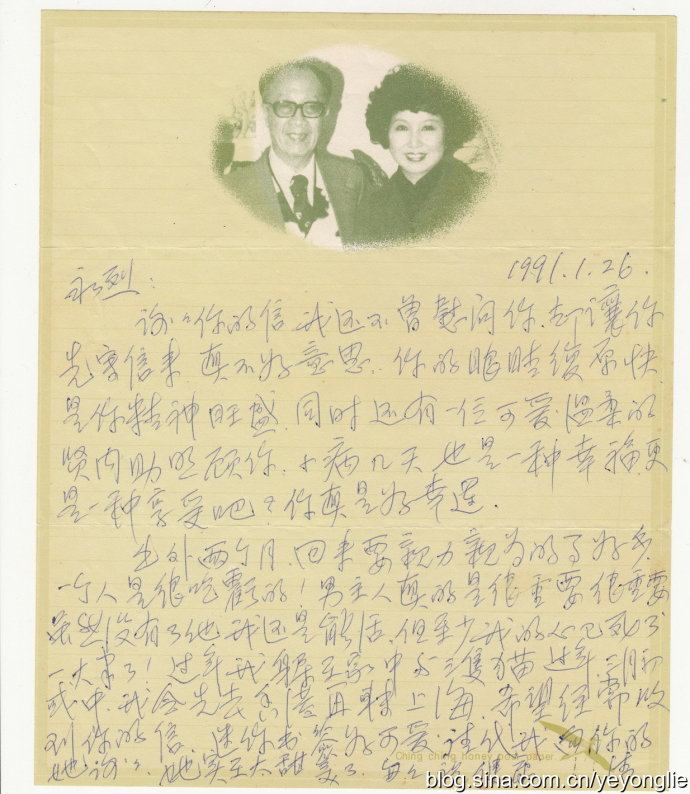 1991.1.26.
永烈:
谢谢你的信,我还不曾慰问你,却让你
先写信来,真不好意思,你的眼睛復原快
是你精神旺盛,同时还有一位可爱温柔的
贤内助照顾你,小病几天也是一种幸福更
是一种享受吧?你真是好幸運.
出外两个月,回来要親力親为的事好多
一个人是很吃虧的!男主人真的是很重要很重要
虽然没有了他我还是能活,但至少我的心已死了
一大半了!过年我躲在家中与三隻猫过年,三月初
或中,我会先去香港再转上海,希望经常收
到你的信,迷你书签好可爱,请代我向你的
她谢谢,她实在太甜美了.
Ching ching honey note paper
blog.sina.com.cn/yeyonglie